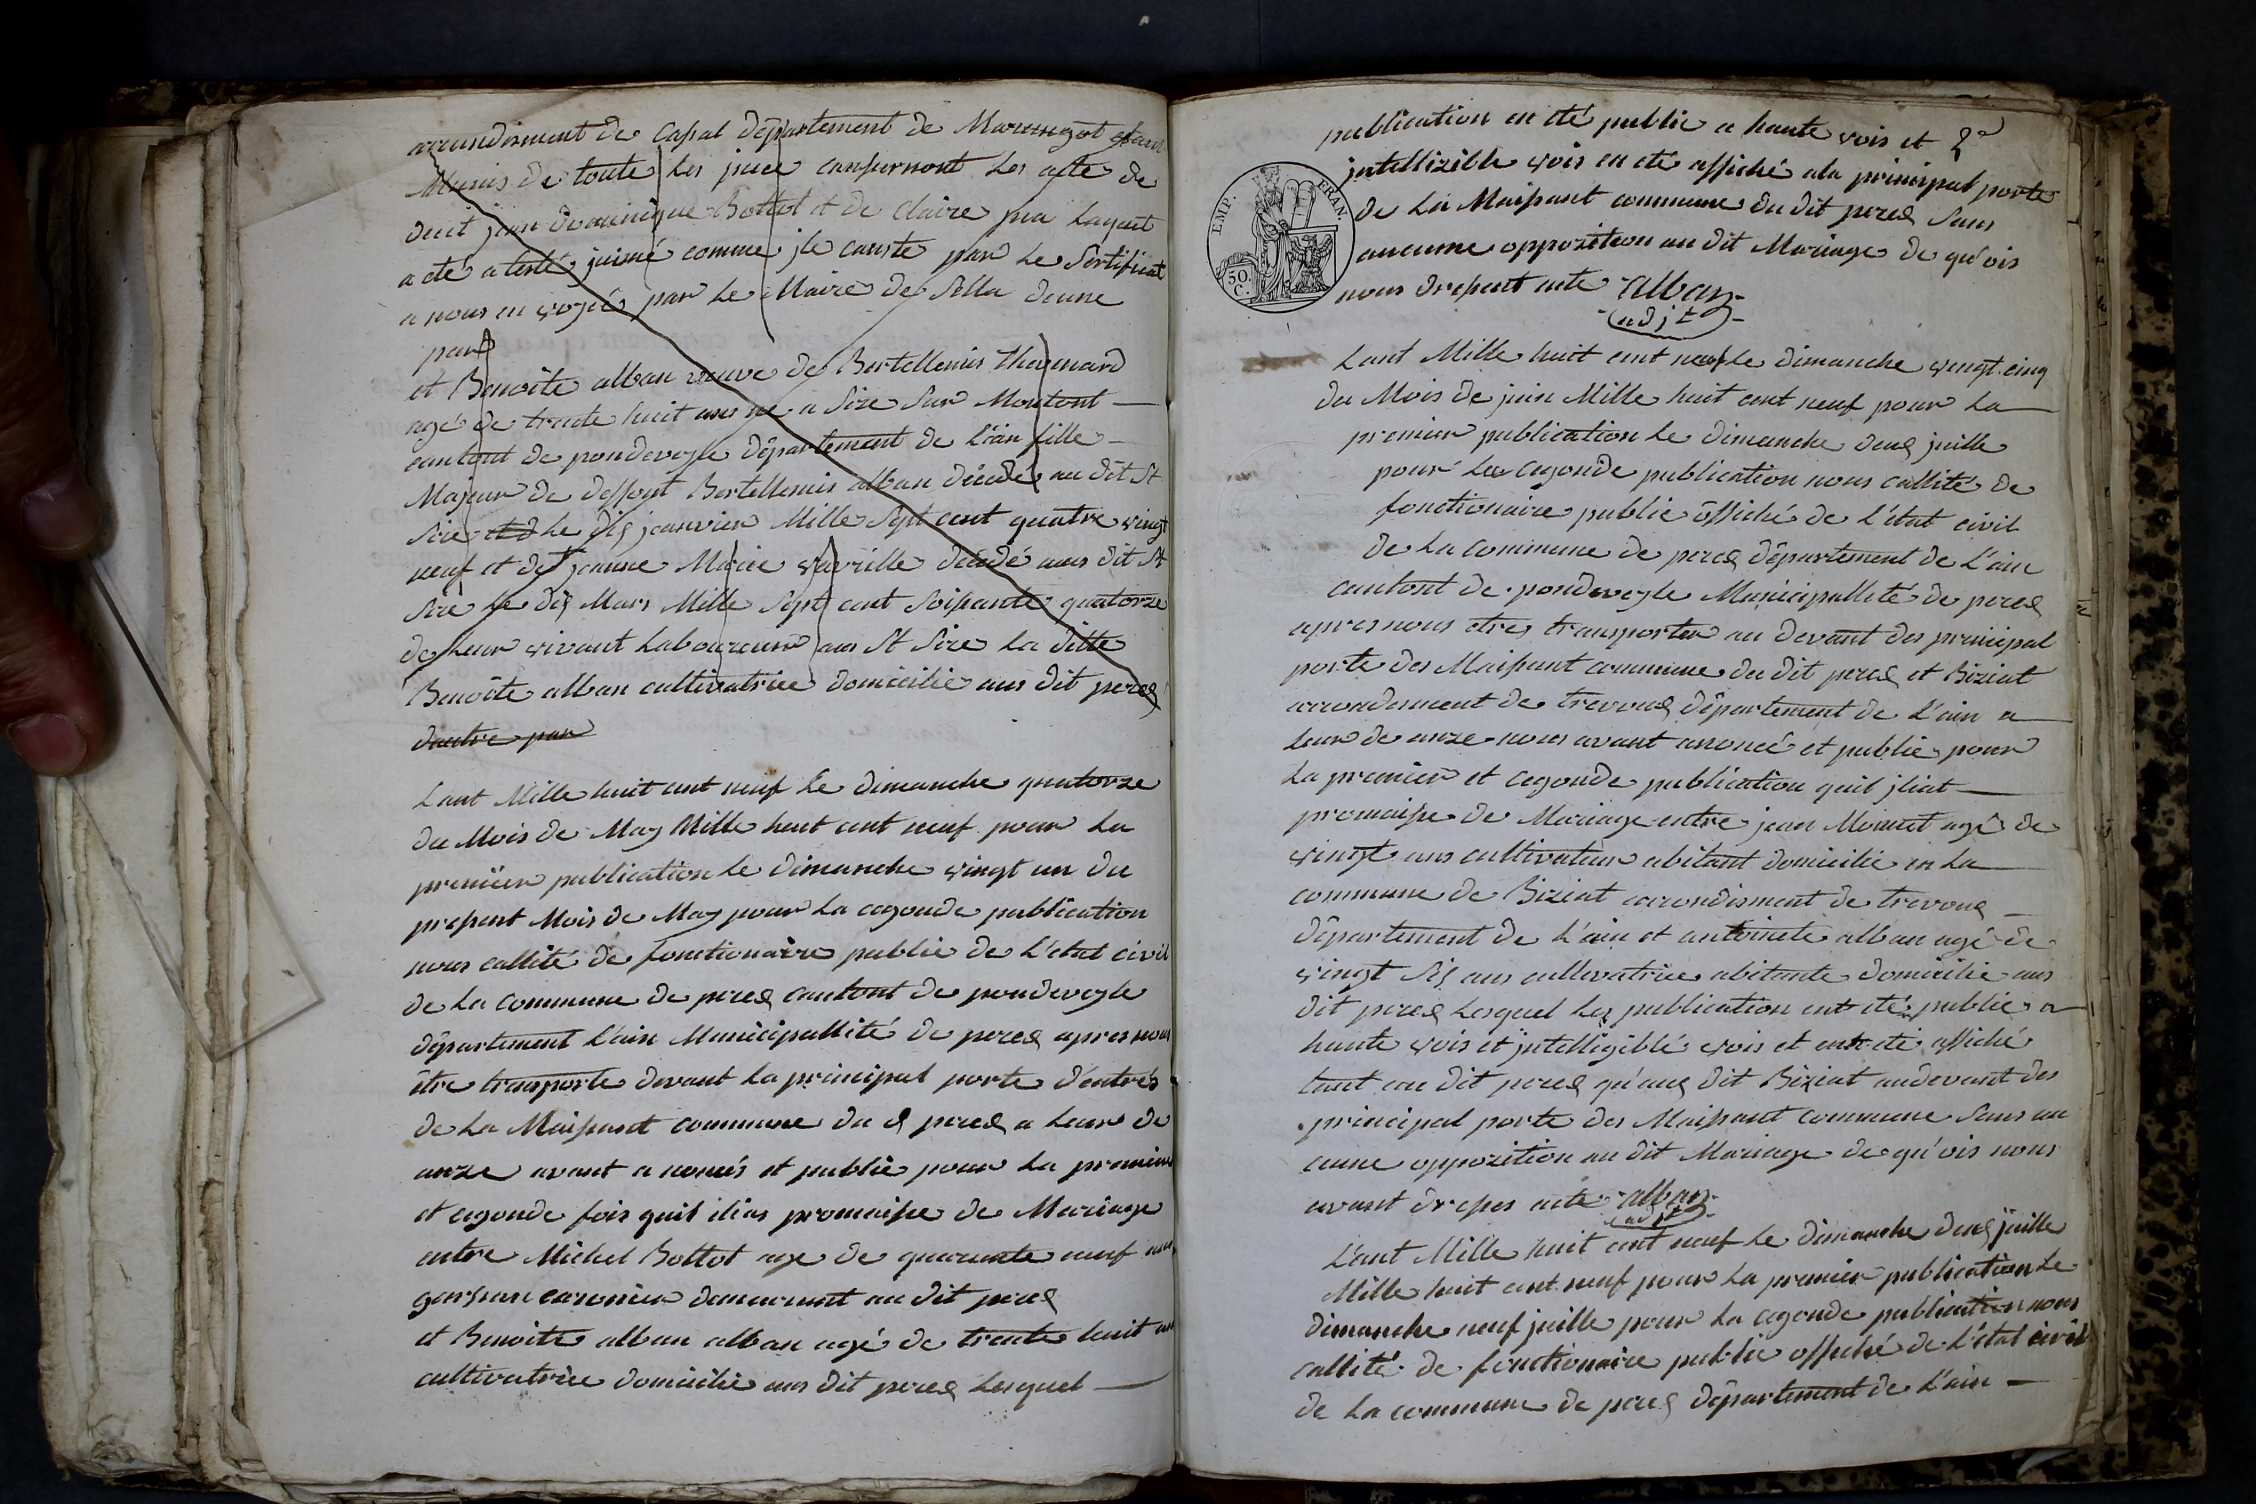 arrondisment de Casal département de Marungot etant
Munis de toute les piece consernont les acte de
decit jean dominique Bottot et de Claire pia laquel
a été atesté juiné comme jle conste par le Sertificat
a nous en voÿé par le Maire de Sella d'eune
par
et Benoite alban veuve de Bertellemis thomnard
agé de trente huit ans né a Size Sur Montont
cantont de pondeveyle département de L'ain fille
Majeur de deffont Bertellemis alban décédé au dit St
Sire et d le dis janvier Mille Sept cent quatre vingt
neuf et de jeanne Marie vavrille décédé aus dit St
Sire le dis Mars Mille Sept cent Soisante quatorze
de leur vivant laboureur aus St Sire la ditte
Benoite alban cultivatrice domicilié aus dit perex
dautre par
Lant Mille huit cent neuf le dimanche quatorze
du Mois de May Mille huit cent neuf pour la
premier publication le dimanche vingt un du
present Mois de May pour la cegonde publication
nous callité de fonctionaire public de l'état civil
de la commune de perex cantont de pondeveyle
département L'ain Municipallité de perex apres nous
être transporté devant la principal porte d'entrés
de la Maisont commune du d perex a leur de
onze avant anonsés et publié pour la premier
et cegonde fois quil ilias promaisse de Mariage
entre Michel Bottot age de quarante neuf ans
garson demeurant au dit perex
et Benoite alban alban agé de trente huit ans
cultivatrice domicilié aus dit perex lesquel
publication en été public a haute vois et 2e
jntellizible vois en eté affiché ala principal porte
de la Maisont commune du dit perex Sans
aucune oppozition au dit Mariage de qu'ois
nous drepent acte alban
adjt
EMP. FRAN.
50 C.
Lant Mille huit cent neuf le dimanche vingt cinq
du Mois de juin Mille huit cent neuf pour la
premier publication le dimanche deux juille
pour la cegonde publication nous callité de
fonctionaire public offiché de l'état civil
de la commune de perex département de L'ain
cantont de pondeveyle Municipallité de perex
apres nous etres transporter au devant des principal
porte des Maisont commune du dit perex et Biziat
arrondisment de trevoux département de L'ain a
leur de onze nous avant anoncé et publié pour
la premier et cegonde publication quil jliat
promaise de Mariage entre jean Monnet agé de
vingt ans cultivateur abitant domicilié en la
commune de Biziat arrondisment de trevoux
département de L'ain et antoinete alban agé de
vingt Six ans cultivatrice abitante domicilié aus
dit perex lesquel les publication ent eté public a
haute vois et jntelligiblé vois et ent eté affiché
tant au dit perex qu'aux dit Biziat audevant des
principal porte des Maisont commune Sans au
cune oppozition au dit Mariage de qu'ois nous
avant drepes acte alban
adjt
L'ant Mille huit cent neuf le dimanche deux juille
Mille huit cent neuf pour la premier publication le
dimanche neuf juille pour la cegonde publication nous
callité de fonctionaire public offiché de l'état civil
de la commune de perex département de L'ain